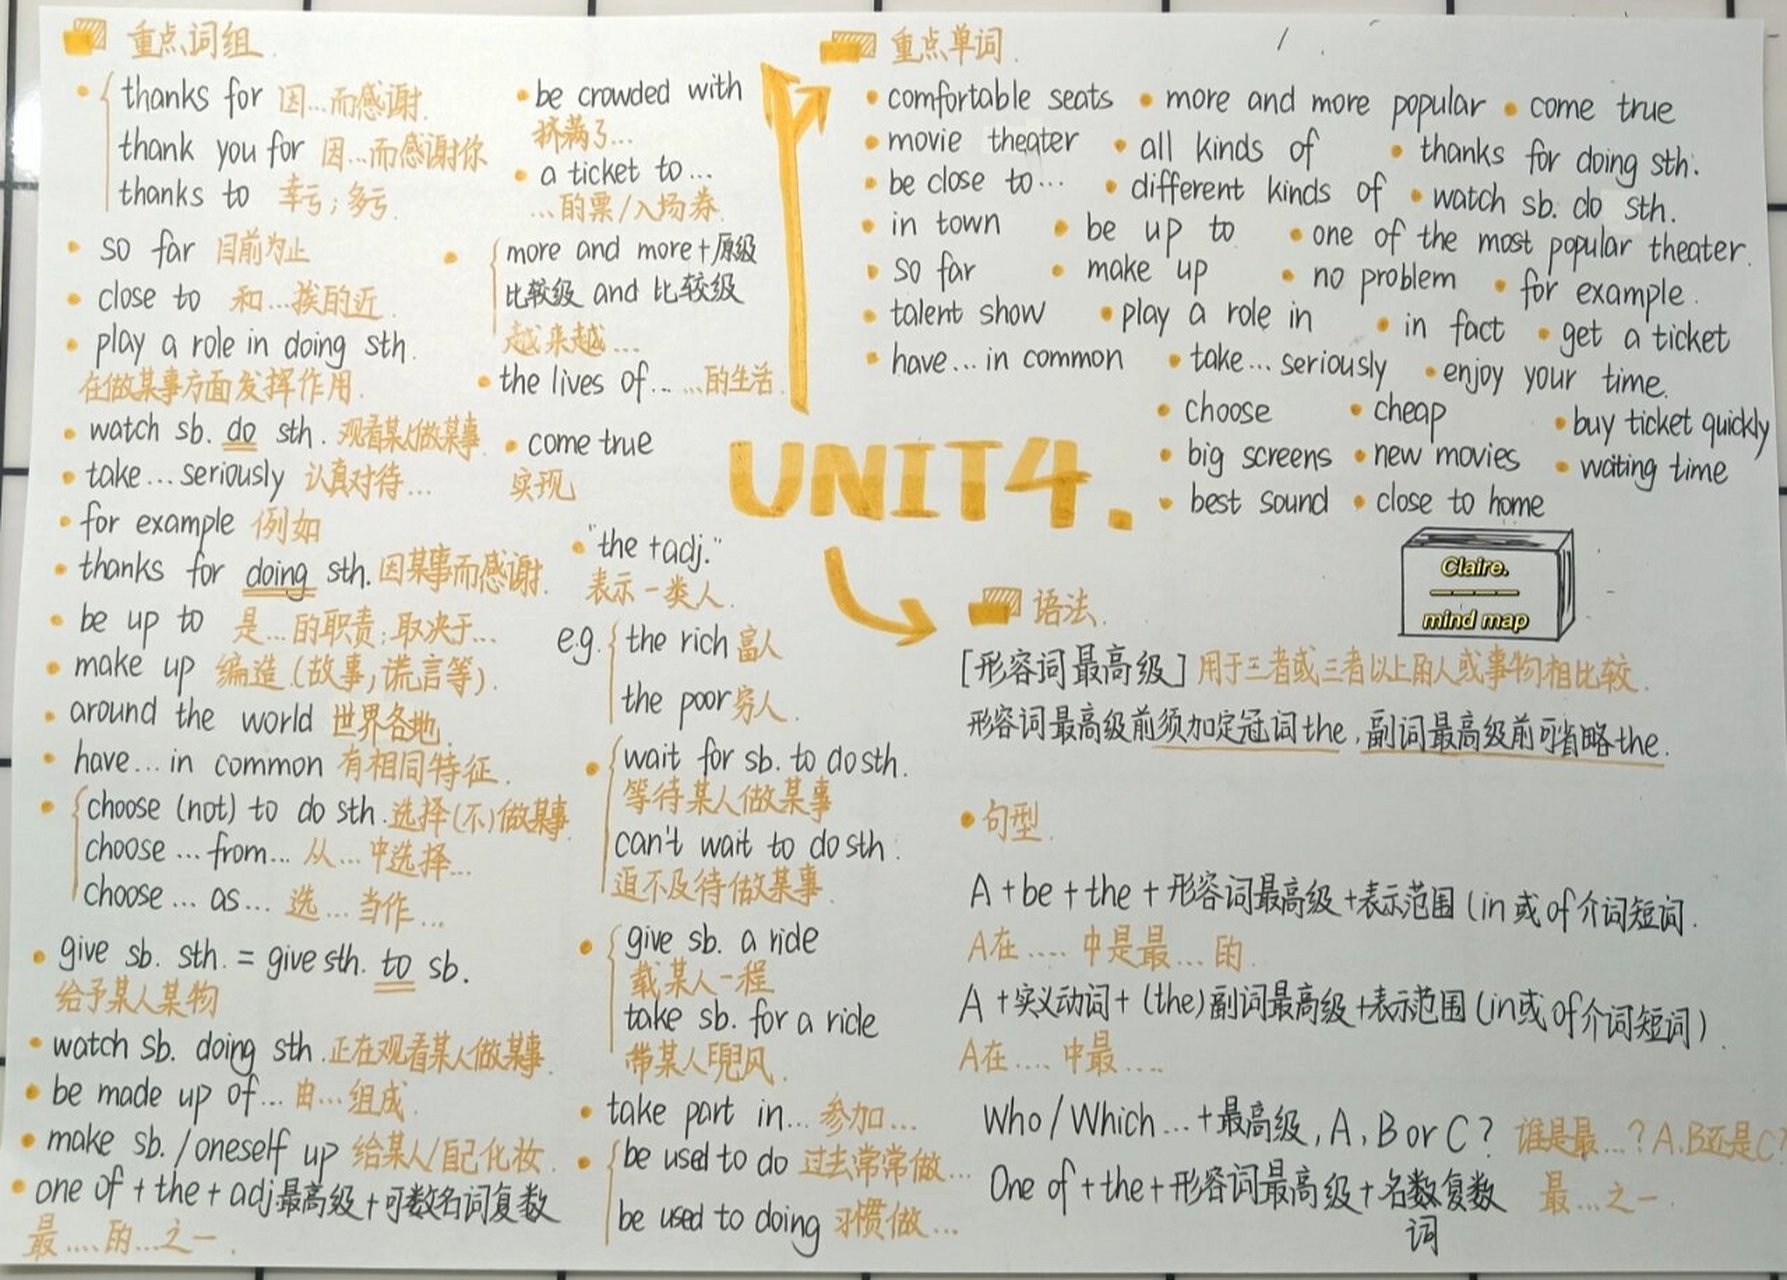 重点词组
thanks for 因...而感谢.
thank you for 因...而感谢你
thanks to 幸亏;多亏.
so far 目前为止
close to 和...挨的近.
play a role in doing sth.
在做某事方面发挥作用.
watch sb. do sth. 观看某人做某事.
take...seriously 认真对待...
for example 例如
thanks for doing sth. 因某事而感谢.
be up to 是...的职责;取决于...
make up 编造.(故事,谎言等).
around the world 世界各地.
have...in common 有相同特征.
choose (not) to do sth. 选择(不)做某事.
choose...from... 从...中选择...
choose...as... 选...当作...
give sb. sth. = give sth. to sb.
给予某人某物
watch sb. doing sth. 正在观看某人做某事.
be made up of... 由...组成.
make sb./oneself up 给某人/自己化妆.
one of + the + adj最高级+可数名词复数
最....的...之一.
be crowded with
挤满了...
a ticket to...
...的票/入场券.
more and more+原级
比较级 and 比较级
越来越...
the lives of... ...的生活.
come true
实现
"the +adj."
表示一类人.
e.g. the rich 富人
the poor 穷人.
wait for sb. to do sth.
等待某人做某事
can't wait to do sth.
迫不及待做某事.
give sb. a ride
载某人一程
take sb. for a ride
带某人兜风.
take part in... 参加...
be used to do 过去常常做...
be used to doing 习惯做...
UNIT4.
重点单词.
comfortable seats more and more popular come true
movie theater all kinds of thanks for doing sth.
be close to... different kinds of watch sb. do sth.
in town be up to one of the most popular theater.
so far make up no problem for example.
talent show play a role in in fact get a ticket
have...in common take...seriously enjoy your time.
choose cheap buy ticket quickly
big screens new movies waiting time
best sound close to home
Claire.
mind map
语法.
[形容词最高级] 用于三者或三者以上的人或事物相比较.
形容词最高级前须加定冠词the,副词最高级前可省略the.
句型.
A+be+the+形容词最高级+表示范围(in或of介词短词.
A在.....中是最...的.
A+实义动词+(the)副词最高级+表示范围(in或of介词短词).
A在....中最....
Who/Which...+最高级,A,B or C? 谁是最...?A,B还是C?
One of+the+形容词最高级+名数复数 最...之一.
词